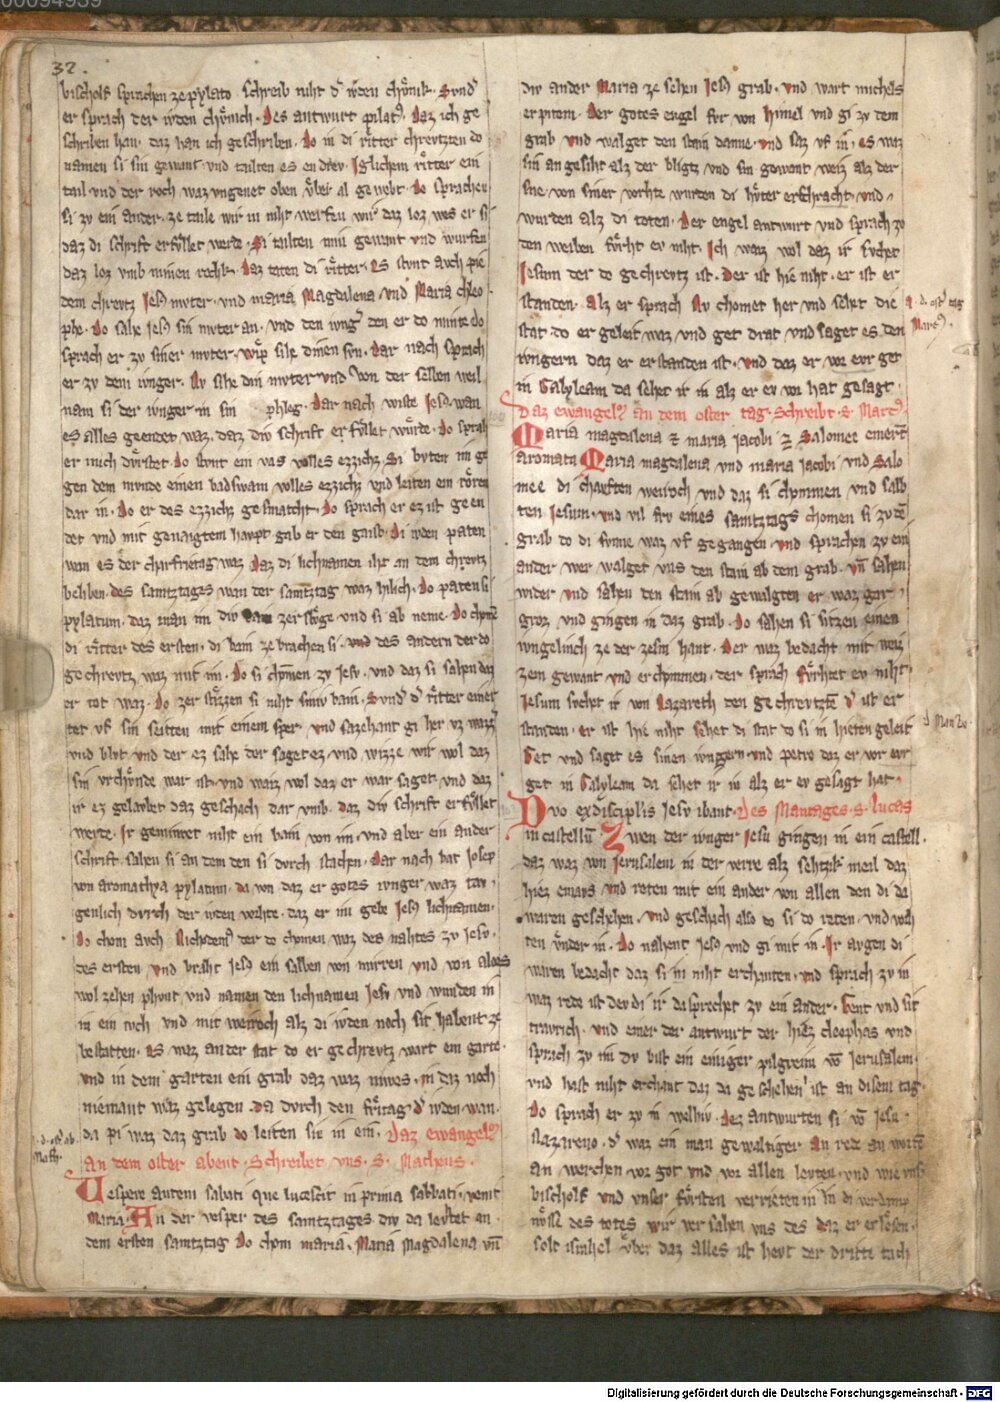 32.
bischolf sprachen ze pylato schreib niht d' ivden chṏnik. Svnd'
er sprach der ivden chṏnich. Des antwurt pilat9. Daz ich ge
schriben han. daz han ich geschriben. Do in di rítter chrevtzten do
namen si sin gewant vnd tailten es en drev. Iglichem rítter ein
tail vnd der roch waz vngenet oben v̊ber al gewebt. Do sprachen
si zv ein ander. ze taile wir in niht werfen wir daz loz wes er si
daz di schrift erfvllet werde. Si tailten min gewant vnd wurfen
daz loz vmb minen rochk. Daz taten di rítter. Es stvnt avch pie
dem chrevtz Jesv mvter. vnd maria Magdalena vnd Maria chleo
phe. Do sahe Jesus sin mvter an. vnd den ivng' den er do minte do
sprach er zv siner mvter. wip sihe dinen svn. Dar nach sprach
er zv dem ivnger. Nv sihe din mvter vnd von der selben weil
nam si der ivnger in sin phleg. Dar nach wiste Jesus wan
es alles geendet waz. daz div schrift erfvllet wu̇rde. Do sprah
er mich du̇rstet do stvnt ein vas volles ezzichz Si bvten im ge
gen dem mvnde einen badswam volles ezzichz vnd leiten ein rören
dar in. Do er des ezzichz gesmacht. Do sprach er ez ist geen
det vnd mit genaigtem havpt gab er den gaist. Di ivden paten
wan es der charfreitag waz daz di lichnamen iht an dem chrevtz
beliben. des samtztages wan der samtztag waz hilich. Do paten si
pylatum. daz man im div bain zerslv̊ge. vnd si ab neme. Do chomen
di rítter des ersten. di bain ze brachen si. vnd des andern der do
gechrevtz waz mit im. Do si chomen zv Jesv. vnd daz si sahen daz
er tot waz. do zerstizzen si niht siniv bain. Svnd' d' rítter einer
tet vf sin seitten mit einem sper. vnd sazehant gi her vz wazz'
vnd blvt vnd der ez sahe der saget ez vnd wizze wir wol daz
sin vrchv̊nde war ist. vnd waiz wol daz er war saget. vnd daz
ir ez gelavbet daz geschach dar vmb. daz div schrift erfvllet
werde. Ir gemínret niht ein bain von im. vnd aber ein ander
schrift. sahen si an dem den si dvrch stachen. Dar nach bat Josep
von aromathya pylatum. da von daz er gotes ivnger waz tav
genlich dvrch der ivden vorhte. daz er im gebe Jesus lichnamen.
Do chom avch Nichodem9 der do chomen waz des nahtes zv Jesv.
des ersten vnd braht Jesus ein salben von mirren vnd von aloes
wol zehen phvnt vnd namen den lichnamen Jesv vnd wunden in
in ein tvch vnd mit weiroch alz di ivden noch sit habent ze
bestatten. Es waz an der stat do er gechrevtz wart ein garte.
vnd in dem garten ein grab daz waz niwes. in daz noch
niemant waz gelegen. da dvrch den frítag. d' ivden wan.
da pi waz daz grab do leiten sie in ein. Daz ewangel9
an dem oster abent. Schreibet vns. S. Matheus.
Vespere autem sabati que lucescit in prima sabbati. venit
Maria. An der vesper des samtztages div da levhtet an
dem ersten samtztag do chom maria. Maria Magdalena vn̄
div ander Maria ze sehen Jesus grab. vnd wart michels
erpitem. Der gotes engel fvr von himel vnd gi zv dem
grab vnd walget den stain danne. vnd saz vf in. es waz
sin angesiht alz der bligtz vnd sin gewant weiz alz der
sne. von siner vorhte wurden di hu̇ter erschracht. vnd
wurden alz di toten. Der engel antwurt vnd sprach zv
den weiben fu̇rht ev niht. Ich waiz wol daz ir svchet
Jesum der do gechrevtz ist. Der ist hie niht. er ist er
standen. alz er sprach Nv chomet her vnd sehet die
stat. do er geleit waz vnd get drat vnd saget es den
ivngern daz er erstanden ist. vnd daz er vor evr get
in Galyleam da sehet ir in alz er ev vor hat gesagt.
Daz ewangel9 an dem oster tag. Schreibt S. Marc9.
Maria magdalena et maria Jacobi et Salomee emert
aromata Maria magdalena vnd maria Jacobi vnd Salo
mee di chavften weiroch vnd daz si chomen vnd salb
ten Jesum. vnd vil frv eines samtztags chomen si zv de
grab do di svnne waz vf gegangen vnd sprachen zv ein
ander wer walget vns den stain ab dem grab. vn̄ sahen
wider vnd sahen den stain ab gewalgten er waz gar
groz vnd gingen in daz grab. Do sahen si sitzen einen
ivngelinch ze der zesm hant. Der waz bedacht mit weiz
zem gewant vnd erchomen. der sprach fu̇rhtet ev niht.
Jesum svchet ir von Nazareth den gechrevtzt d' ist er
standen. er ist hie niht sehet di stat do si in hieten geleit
Get vnd saget es sinen ivngern vnd petro daz er vor evr
get in Galyleam da sehet ir in alz er ev gesagt hat.
Dvo ex disciplis Jesv ibant. Des Mantages. S. Lucas
in castellu. Zwen der ivnger Jesu gingen in ein castell.
daz waz von Jerusalem in der verre alz sehtzik meil daz
hiez emavs vnd reten mit ein ander von allen den di da
waren geschehen. vnd geschach also do si do reten. vnd woh
ten vnder in. Do nahent Jesus vnd gi mit in. Ir avgen di
waren bedacht daz si in niht erchanten. vnd sprach zv in
waz rede ist dev di ir da sprechet zv ein ander. Gent vnd sit
travrich. vnd einer der antwurt der hiez cleophas vnd
sprach zv im dv bist ein einiger pilgreim vō Jerusalem.
vnd hast niht erchant daz da geschehen ist an disem tag.
Do sprach er zv in welhiv. dez antwurten si vō Jesu
Nazareno. d' waz ein man gewaltiger an rede an worte
an werchen vor got vnd vor allen levten. vnd wie vns
bischolf vnd vnser fu̇rsten verrieten in in di verdamp
nv̊sse des todes wir versahen vns des daz er erlosen.
solt israhel v̊ber daz alles ist hevt der dritte tach
Digitalisierung gefördert durch die Deutsche Forschungsgemeinschaft - DFG